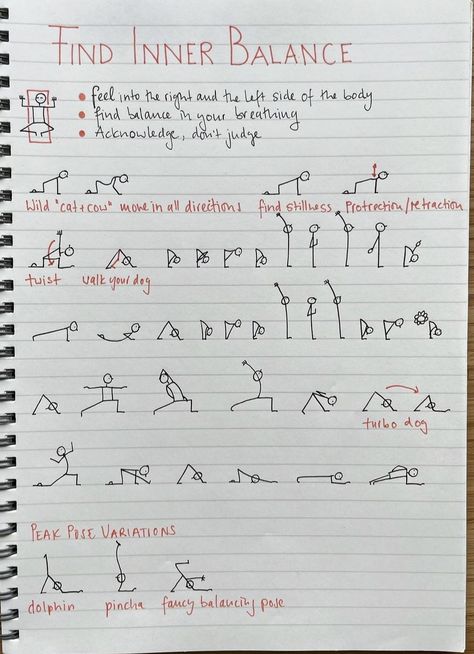 FIND INNER BALANCE
• feel into the right and the left side of the body
• find balance in your breathing
• Acknowledge, don't judge
Wild "cat+cow" move in all directions find stillness Protraction/retraction
twist walk your dog
turbo dog
PEAK POSE VARIATIONS
dolphin pincha fancy balancing pose